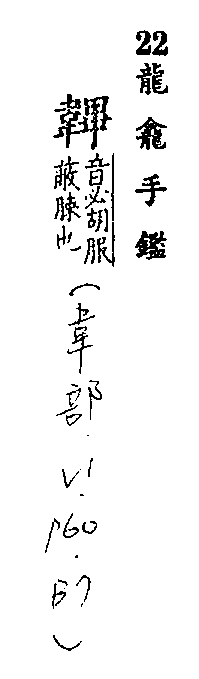 22龍龕手鑑
韠音必胡服
蔽膝也
(韋部.V1.
P60.B7)